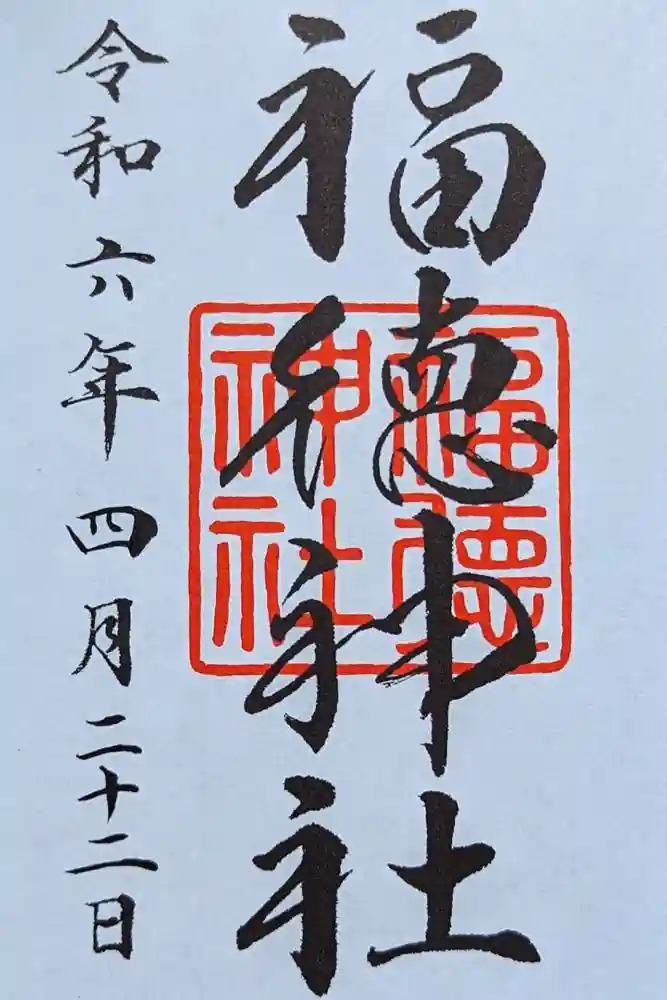 福德神社
福德神社
令和六年四月二十二日